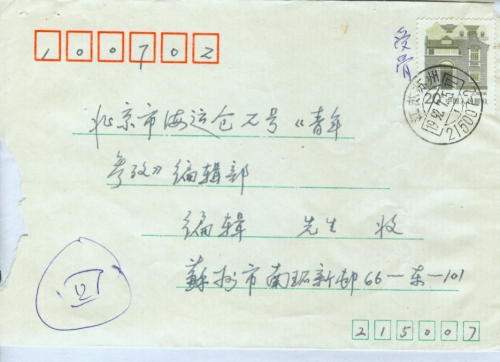 100702
北京市海运仓2号《青年
参考》编辑部
编辑 先生 收
蘇州市南环新邨66-东-101
215007